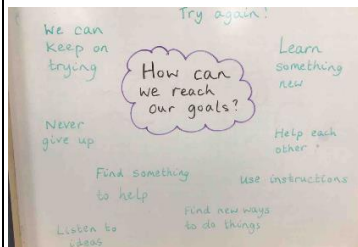 Try again!
We can
keep on
trying
How can
we reach
our goals?
Learn
something
new
Never
give up
Help each
other
Find something
to help
Use instructions
Find new ways
to do things
Listen to
ideas